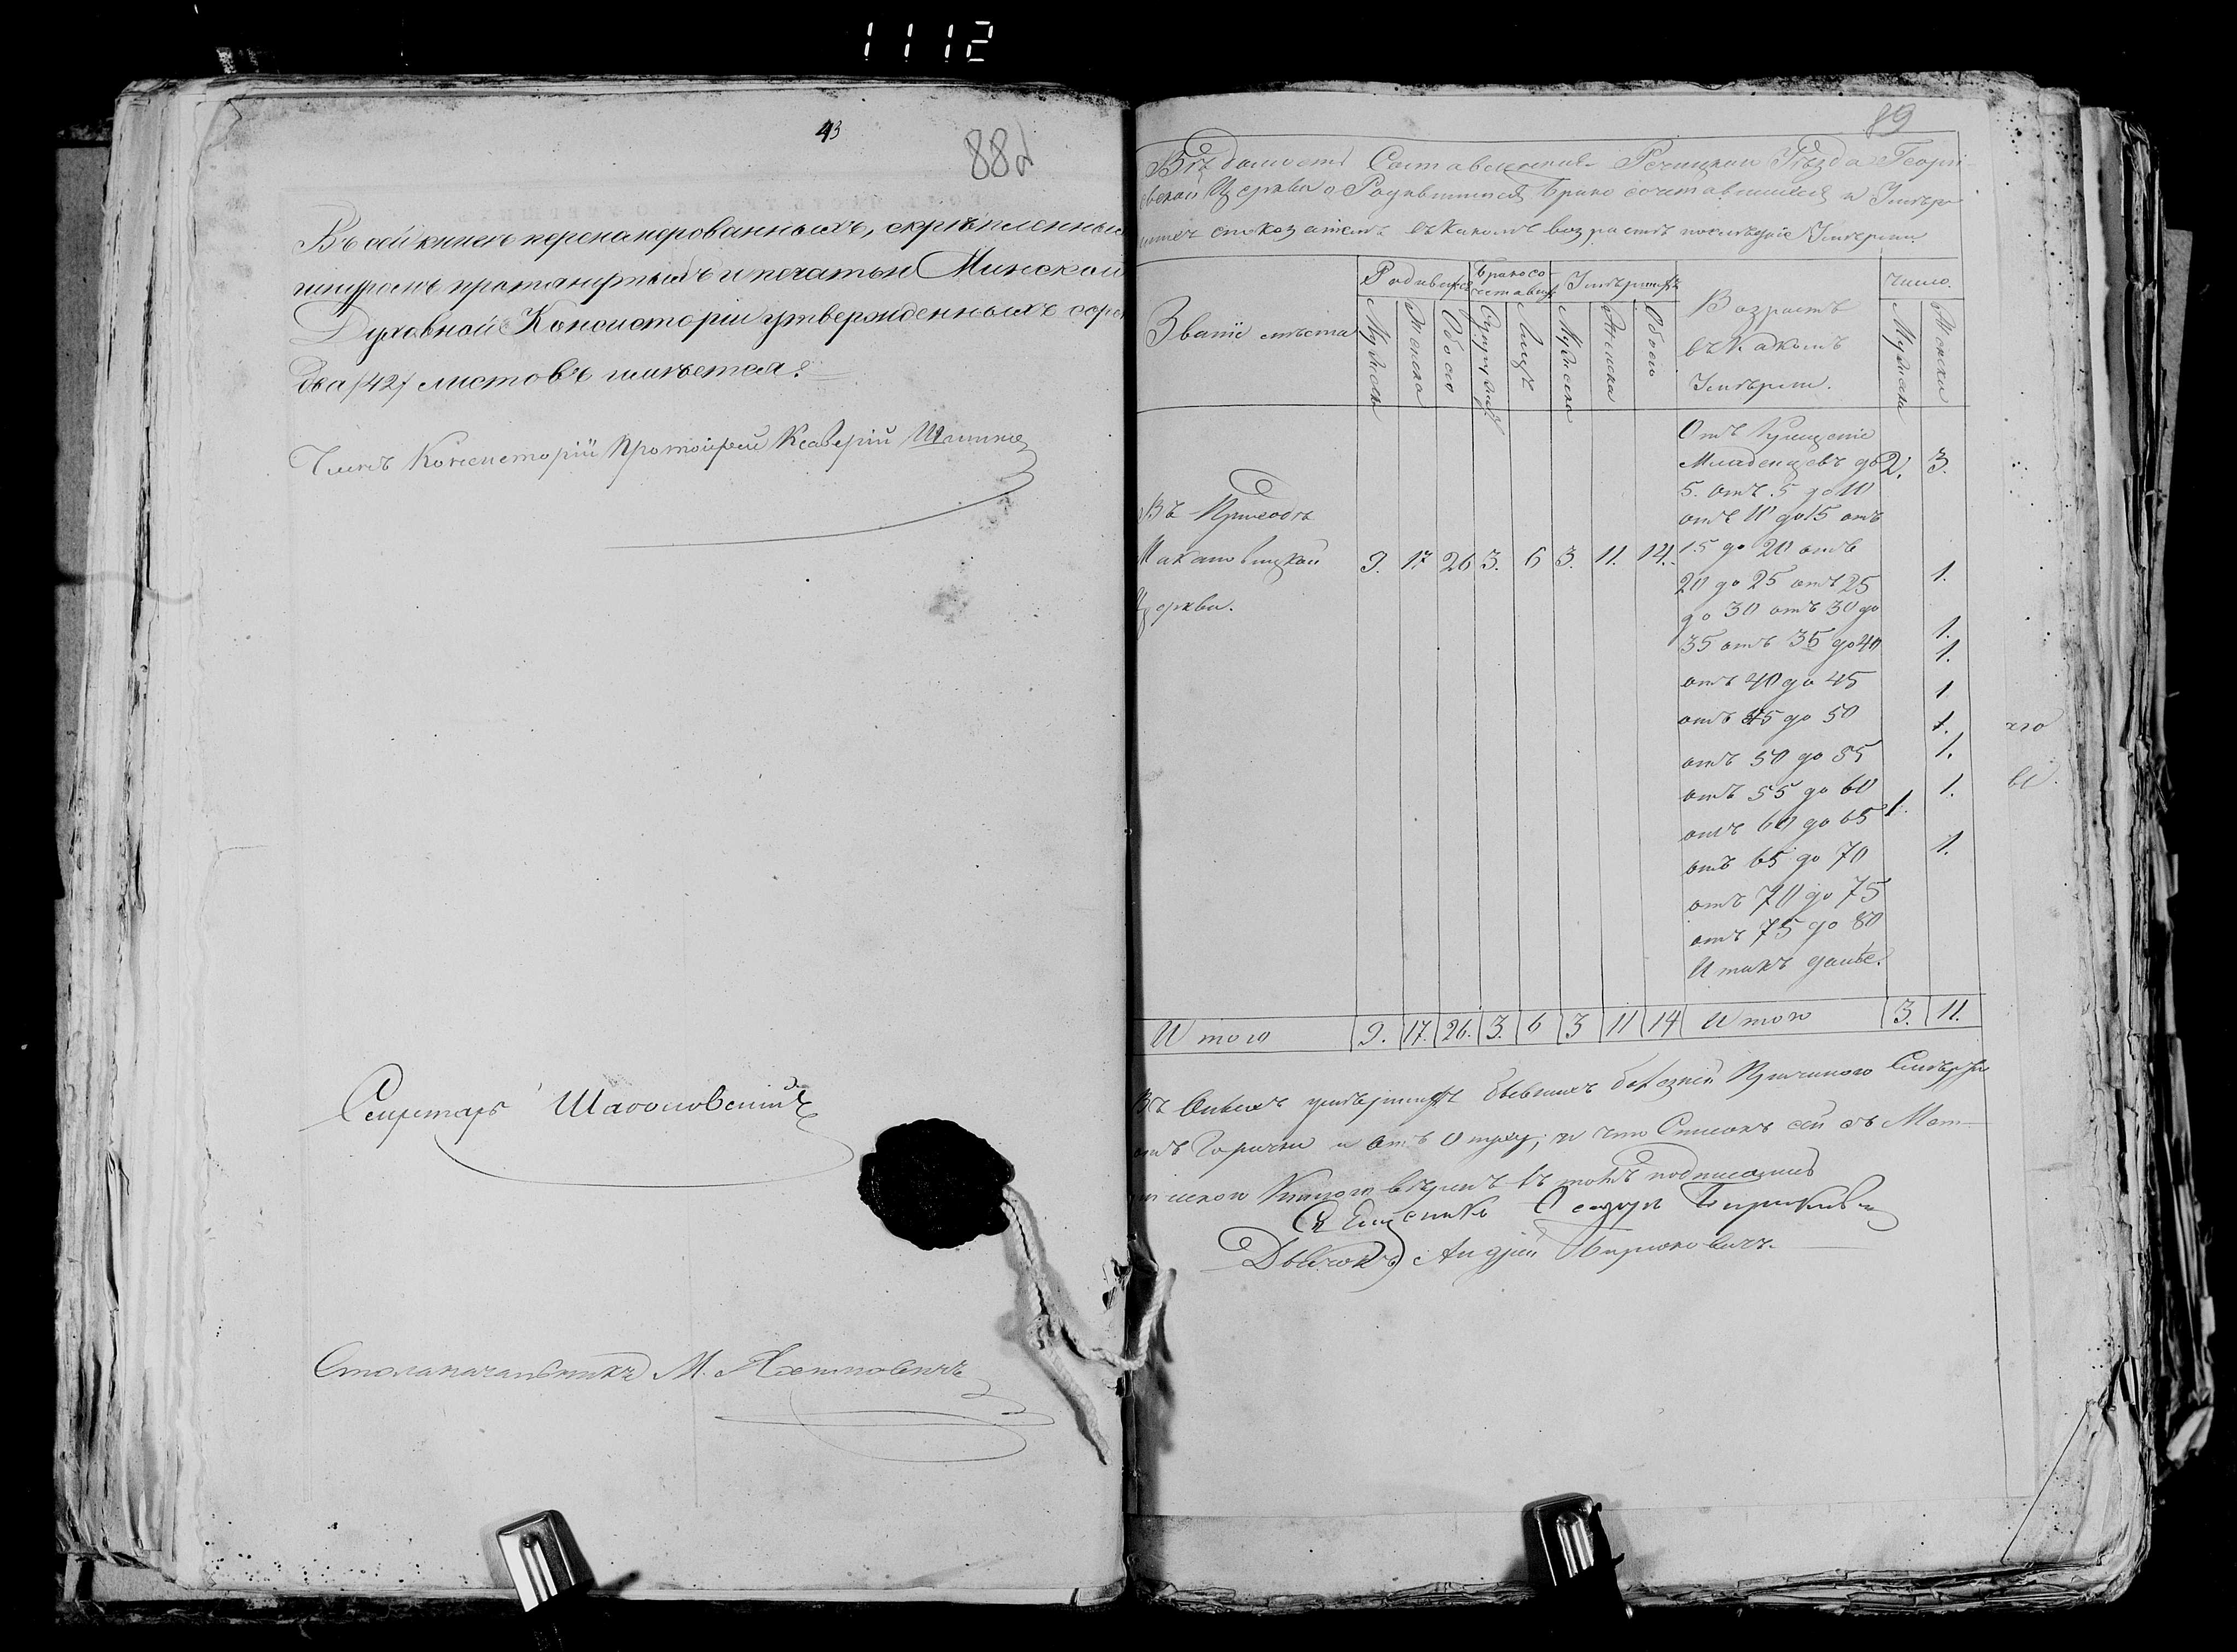 1112
43
88
Въ сей книгѣ перенумерованныхъ, скрѣпленныхъ
шнуромъ протянутымъ и печатью Минской
Духовной Консисторіи утвержденныхъ сорокъ
два /42/ листовъ имѣется.
Членъ Консисторіи Протоіерей Ксаверій
Секретарь
Столоначальникъ М.
89
Вѣдомость Составленная Речицкаго Уѣзда Георгі-
евской Церкви о Родившихся Брако сочетавшихся и Умѣр
шихъ съ показаніемъ въ какомъ возрастѣ послѣдніе Умѣрли
Званіе мѣста
Родившихся
Бракосо-
четавш.
Умѣршихъ
Возрастъ
въ Какомъ
Умѣрли.
Число.
Мужеска
Женска
Обоего
Супружествъ
Лицъ
Мужеска
Женска
Обоего
Мужеска
Женска
Отъ Крещенія
Младенцевъ до 2. 3.
5. отъ 5 до 10
отъ 10 до 15 отъ
15 до 20 отъ
20 до 25 отъ 25 1.
до 30 отъ 30 до
35 отъ 35 до 40 1.
1.
отъ 40 до 45 1
отъ 45 до 50 1.
отъ 50 до 55 1.
отъ 55 до 60 1.
отъ 60 до 65 1.
отъ 65 до 70 1.
отъ 70 до 75
отъ 75 до 80
И такъ далѣе.
Въ Приходѣ
Макановицкой 9. 17 26 3. 6 3. 11. 14.
Церкви.
Итого 9. 17. 26. 3. 6 3 11 14 Итого 3. 11.
Въ Оныхъ умѣршихъ бывшихъ болѣзней Причиною Смерти
отъ Горячки и отъ; и что Списокъ сей съ Мет-
рическою Книгою вѣренъ въ томъ подписались
Священникъ
Дьячокъ Андрей Бирюковичъ.